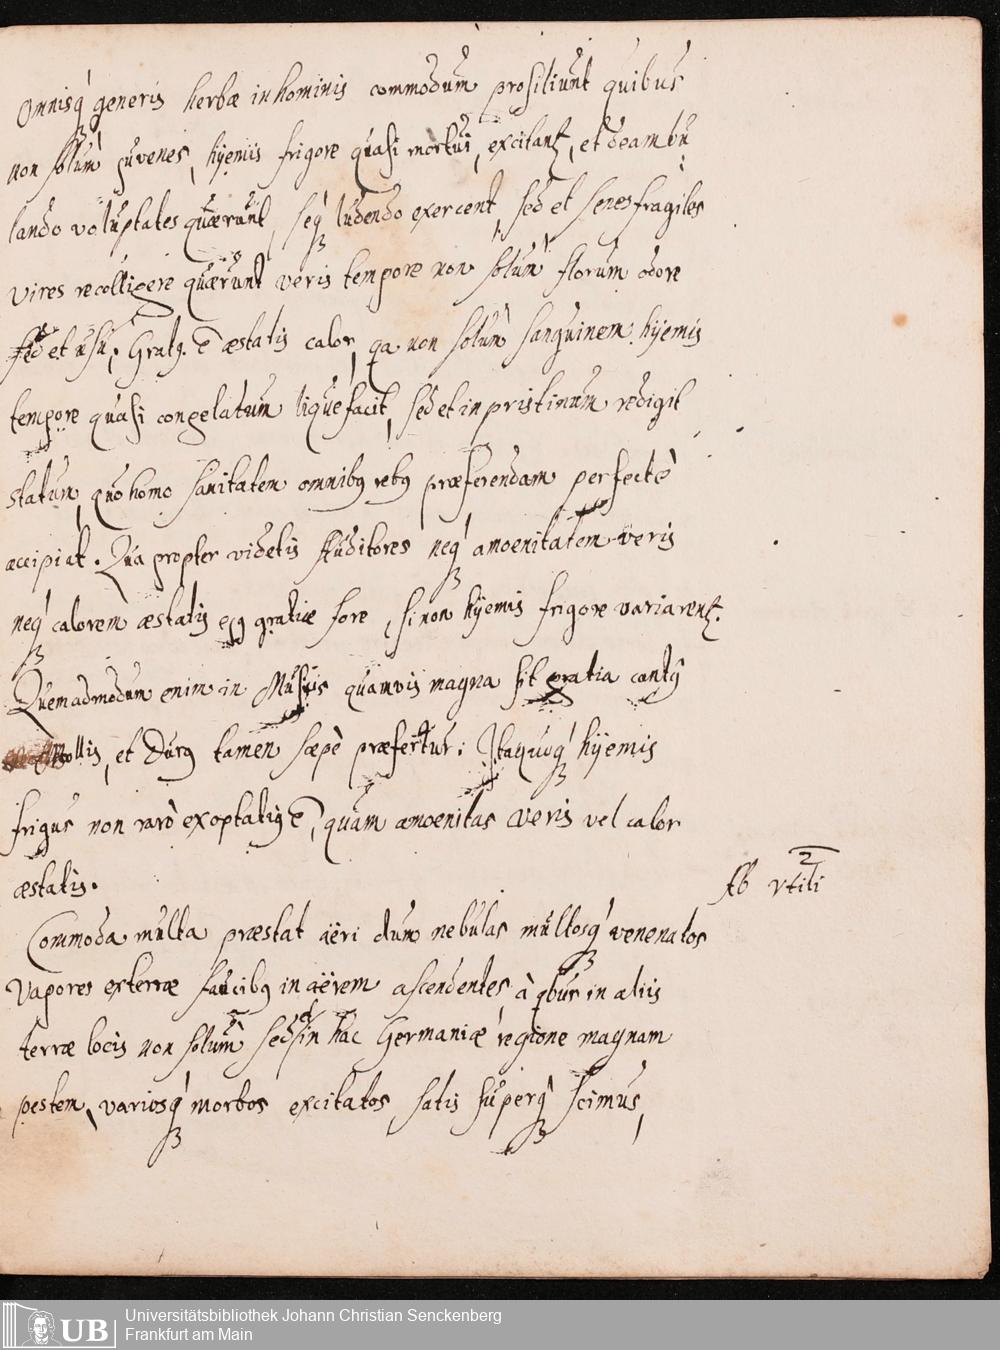 Omnisq́ generis herbæ in hominis commodum prosiliunt quibus
non solum juvenes, hyemis frigore quasi mortui, excitant, et deambu
lando voluptates quærunt, seq́ ludendo exercent, sed et senes fragiles
vires recolligere quærunt veris tempore non solum florum odore
sed et usu. Gratq. ē æstatis calor, qa non solùm sanguinem hyemis
tempore quasi congelatum liquefacit, sed et in pristinum redigit
statum, quo homo sanitatem omnibq rebq præferendam perfectè
accipiat. Qua propter videtis Auditores neq́ amoenitatem veris
neq́ calorem æstatis ejq gratiæ fore, si non hyemis frigore variarent.
Quemadmodum enim in Musicis quamvis magna sit gratia cantq
mollis, et Durq tamen sæpè præfertur: Itaq́ hyemis
frigus non rarò exoptatiq ē, quam amoenitas veris vel calor
æstatis.
Ab utili 2
Commoda multa præstat aëri dum nebulas multosq́ venenatos
Vapores ex terræ faucibq in aërem ascendentes, à qbus in aliis
terræ locis non solum sed et in hac Germaniæ regione magnam
pestem, variosq́ morbos excitatos satis superq́ scimus,
UB Universitätsbibliothek Johann Christian Senckenberg
Frankfurt am Main